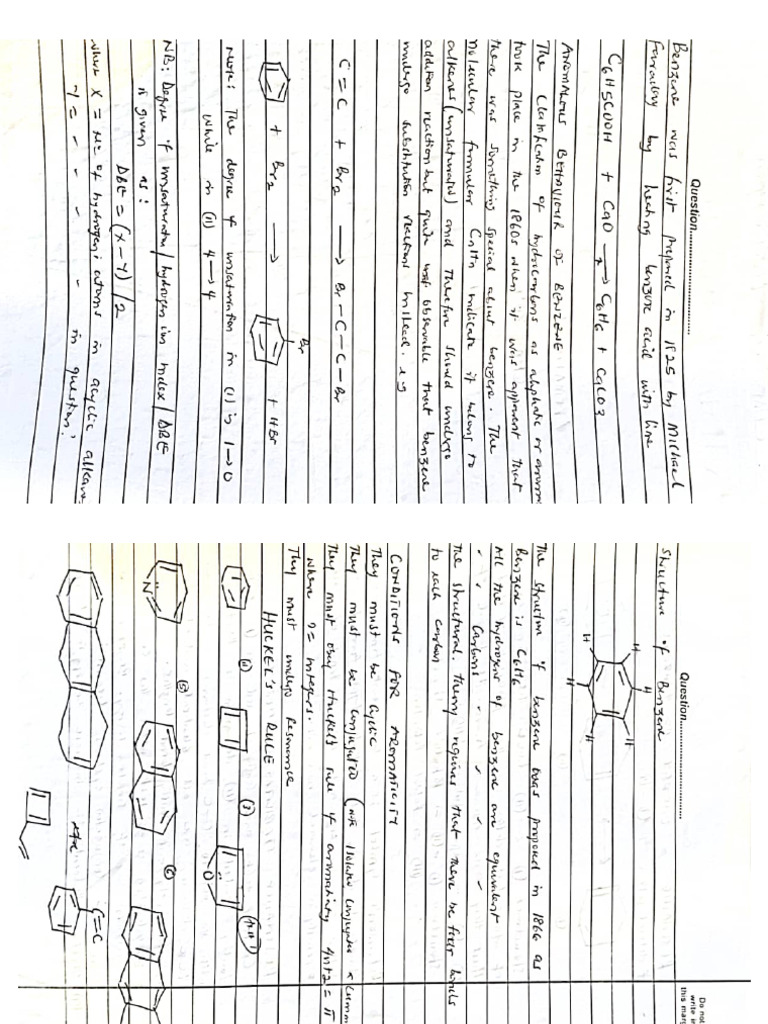 Question
Benzene was first prepared in 1825 by Michael
Faraday by heating benzoic acid with lime
C6H5COOH + CaO → C6H6 + CaCO3
ANOMALOUS BEHAVIOUR OF BENZENE
The Classification of hydrocarbons as aliphatic or aroma
took place in the 1860s when it was apparent that
there was something special about benzene. The
molecular formular CnHn indicate it belong to
alkenes (unsaturated) and therefore should undergo
addition reaction but quite observable that benzene
undergo substitution reactions instead. e.g
C = C + Br2 → Br – C – C – Br
+ Br2 → Br + HBr
NOTE: The degree of unsaturation in (1) is 1→0
while in (ii) 4→4
NB: Degree of unsaturation / hydrogen index / DBE
is given as:
DBE = (X – Y) / 2
where X = No of hydrogen atoms in acyclic alkane
Y = - - - - in question.
Question
Structure of Benzene
H
H
H
H
H
H
The structure of benzene was proposed in 1866 as
benzene is C6H6
All the hydrogens of benzene are equivalent
" " Carbons " " "
The structural theory requires that there be four bonds
to each carbon
CONDITIONS FOR AROMATICITY
They must be cyclic
They must be conjugated
They must obey Huckel's rule of aromaticity 4n+2 = π
where n = integers.
They must undergo resonance
HUCKEL'S RULE
O
N
C=C
Do not
write in
this mar